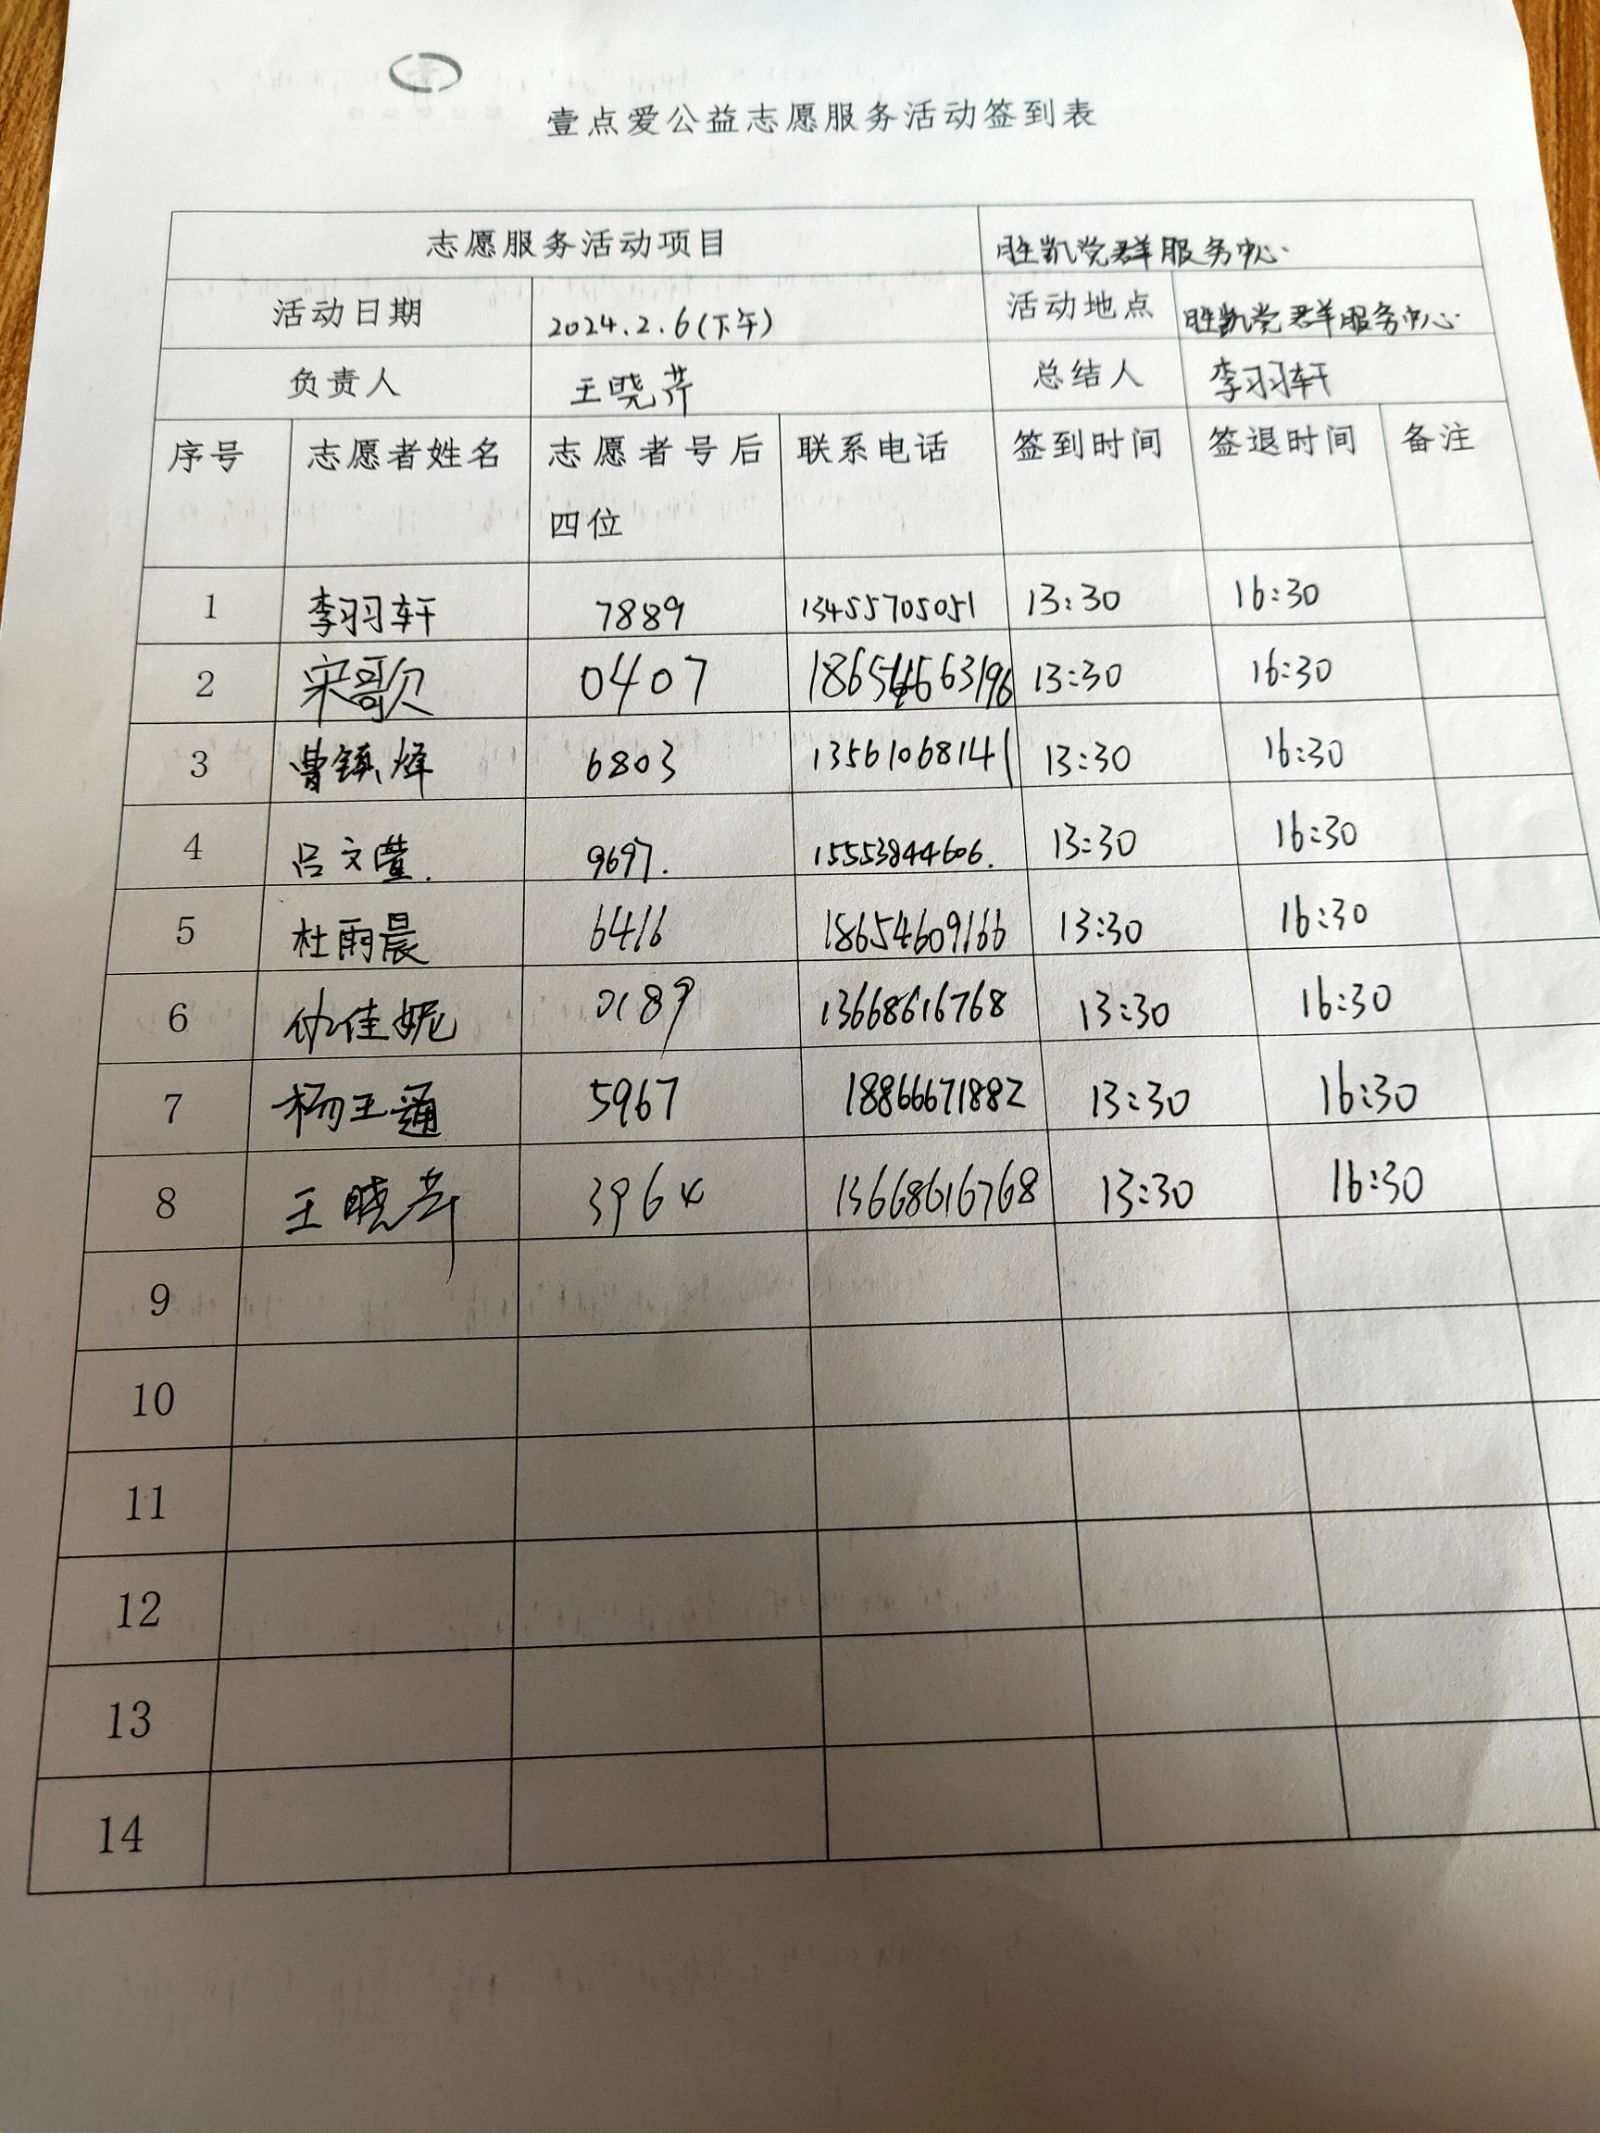 壹点爱公益志愿服务活动签到表
志愿服务活动项目 胜凯党群服务中心
活动日期 2024.2.6(下午) 活动地点 胜凯党群服务中心
负责人 王晓芹 总结人 李羽轩
序号 志愿者姓名 志愿者号后 联系电话 签到时间 签退时间 备注
四位
1 李羽轩 7889 13455705051 13:30 16:30
2 宋歌 0407 13:30 16:30
3 曹镇烽 6803 13561068141 13:30 16:30
4 吕文萱. 9697. 15553844606. 13:30 16:30
5 杜雨晨 6416 18654609166 13:30 16:30
6 佳妮 0189 13668616768 13:30 16:30
7 杨王通 5967 18866671882 13:30 16:30
8 王晓芹 3964 13668616768 13:30 16:30
9
10
11
12
13
14